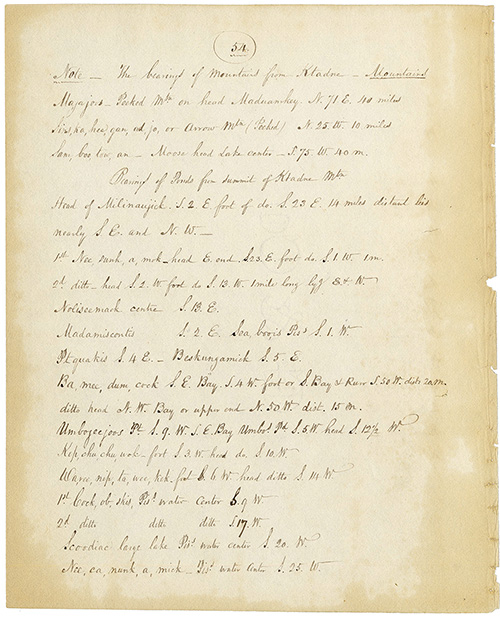 54.
Note — The bearings of Mountains from Ktadne — Mountains
Magajors — Peeked Mtn on head Madunankey. N. 71 E. 40 miles
Sis, ka, hee, gan, od, jo, or Arrow Mtn (Peeked) N. 25. W. 10 miles
Sam, boo tow, an — Moose head Lake center — S. 75. W. 40 m.
Bearings of Ponds from summit of Ktadne Mtn
Head of Milinaujick. S. 2. E. foot of do. S. 23 E. 14 miles distant lies
nearly S. E. and N. W. —
1st Nee, sunk, a, mok — head E. end. S23. E. foot do. S. 1. W. 1m.
2d. ditto — head S. 2. W foot do S. 13. W. 1 mile long lyg E & W.
Noliseemack centre S. 13. E.
Madamiscontis S. 2 E. Sea, boois Pis S. 1. W.
Ptquakis S. 4 E. — Beskungamick S. 5. E.
Ba, mee, dum, cook S. E. Bay. S. 14 W. foot or S. Bay & River S. 50 W. dists 20 m.
ditto head N. W. Bay or upper end N. 50 W. dist. 15 m.
Umbogeejoos Pt S. 9. W. S. E. Bay Umbos Pd S. 5 W head S. 12½ W.
Kep, chu, chu, wok — foot S. 3. W. head do. S. 10. W
Waree, nip, to, wee, kek. foot S. 6 W head ditto S. 14 W
1st Cook, ob, skis, Pis. water center S. 9 W
2d. ditto ditto ditto S. 17. W.
Scordiac large lake Pis water center S. 20. W
Nee, ca, nunk, a, mick — Pis. water center S. 25. W.